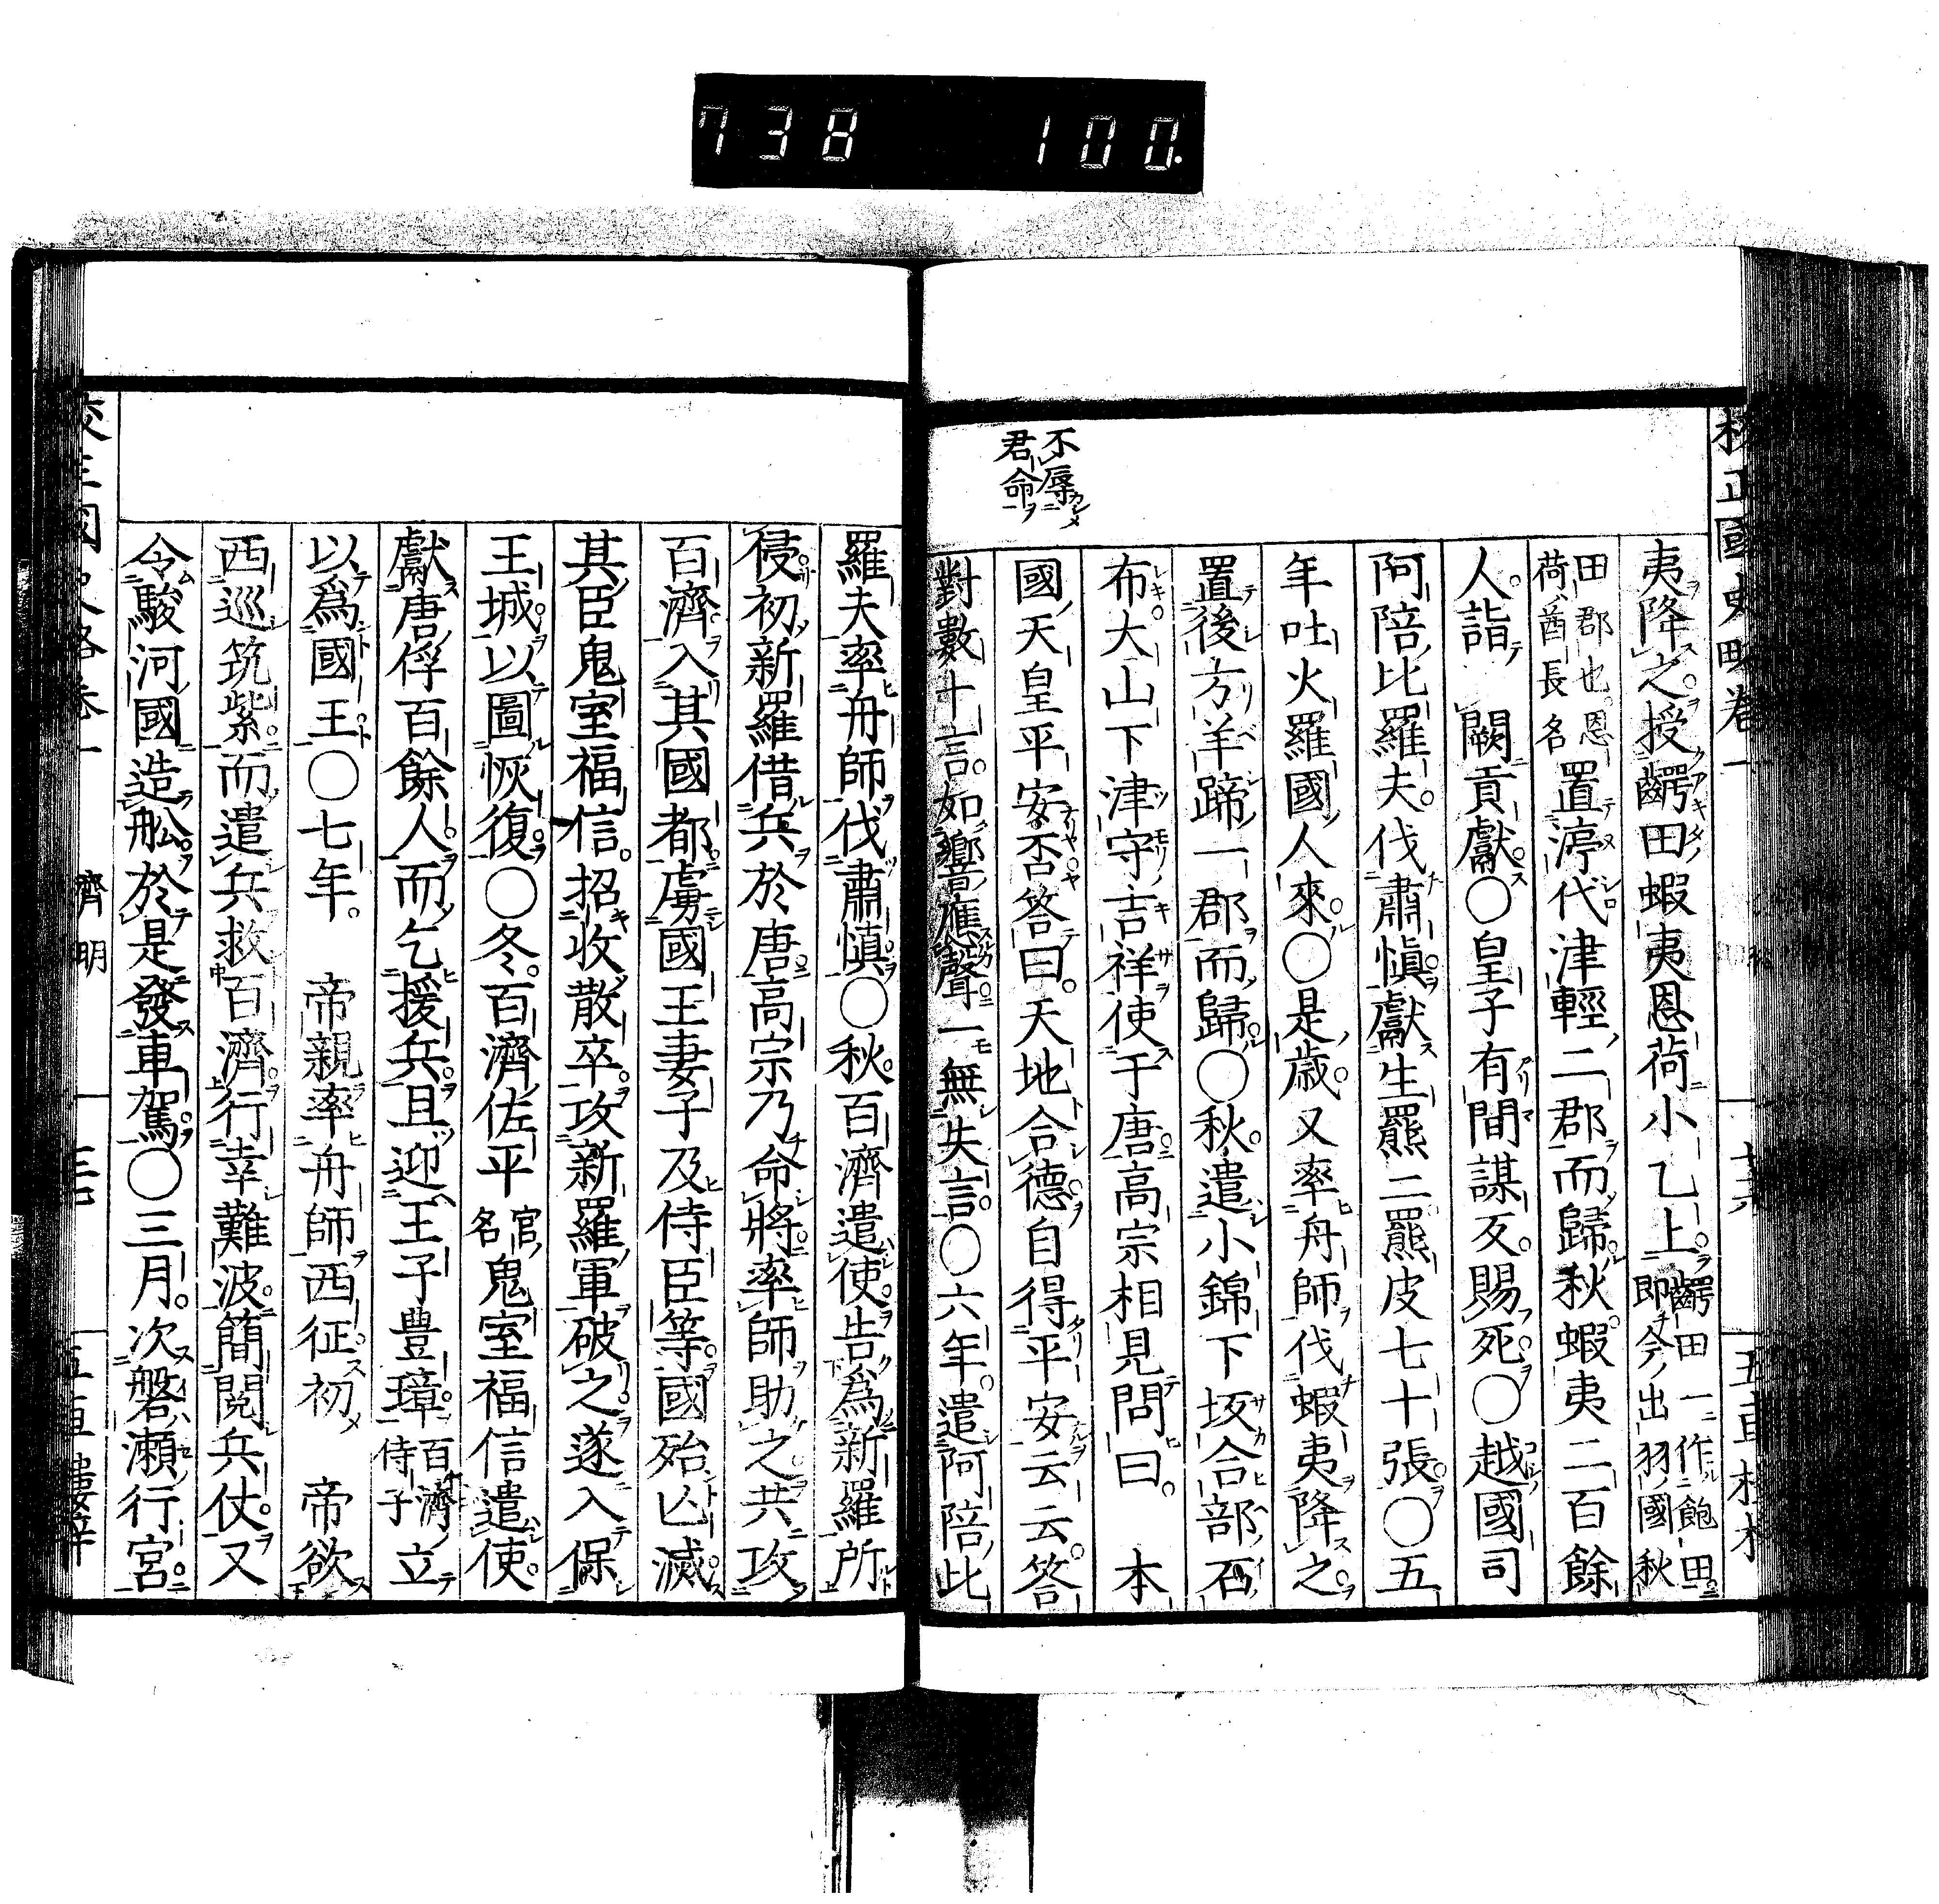 738 100.
校正國史略卷一
夷降之。授齶田蝦夷恩荷小乙上。齶田一作飽田即今出羽國秋
田郡也。恩荷、酋長名置渟代津輕二郡而歸。秋蝦夷二百餘
人。詣 闕貢獻○皇子有間謀反。賜死○越國司
阿陪比羅夫。伐肅愼。獻生羆二羆皮七十張○五
年吐火羅國人來○是歲。又率舟師伐蝦夷降之。
置後方羊蹄一郡而歸○秋。遣小錦下坂合部石
布大山下津守吉祥使于唐高宗相見問曰。 本
國天皇平安否。答曰。天地合德。自得平安云云。答
對數十言。如響應聲。一無失言。○六年。遣阿陪比
不辱
君命
羅夫率舟師伐肅愼○秋。百濟遣使。告爲新羅所
侵初新羅借兵於唐高宗乃命將率師助之。共攻
百濟入其國都。虜國王妻子及侍臣等。國殆亾滅
其臣鬼室福信。招收散卒。攻新羅軍破之。遂入保
王城。以圖恢復。○冬。百濟佐平官名鬼室福信遣使。
獻唐俘百餘人。而乞援兵。且迎王子豊璋。百濟侍子立
以爲國王○七年。 帝親率舟師西征初 帝欲
西巡筑紫而遣兵救百濟行幸難波。簡閱兵仗。又
令駿河國造舩。於是發車駕。○三月。次磐瀨行宮。
濟明